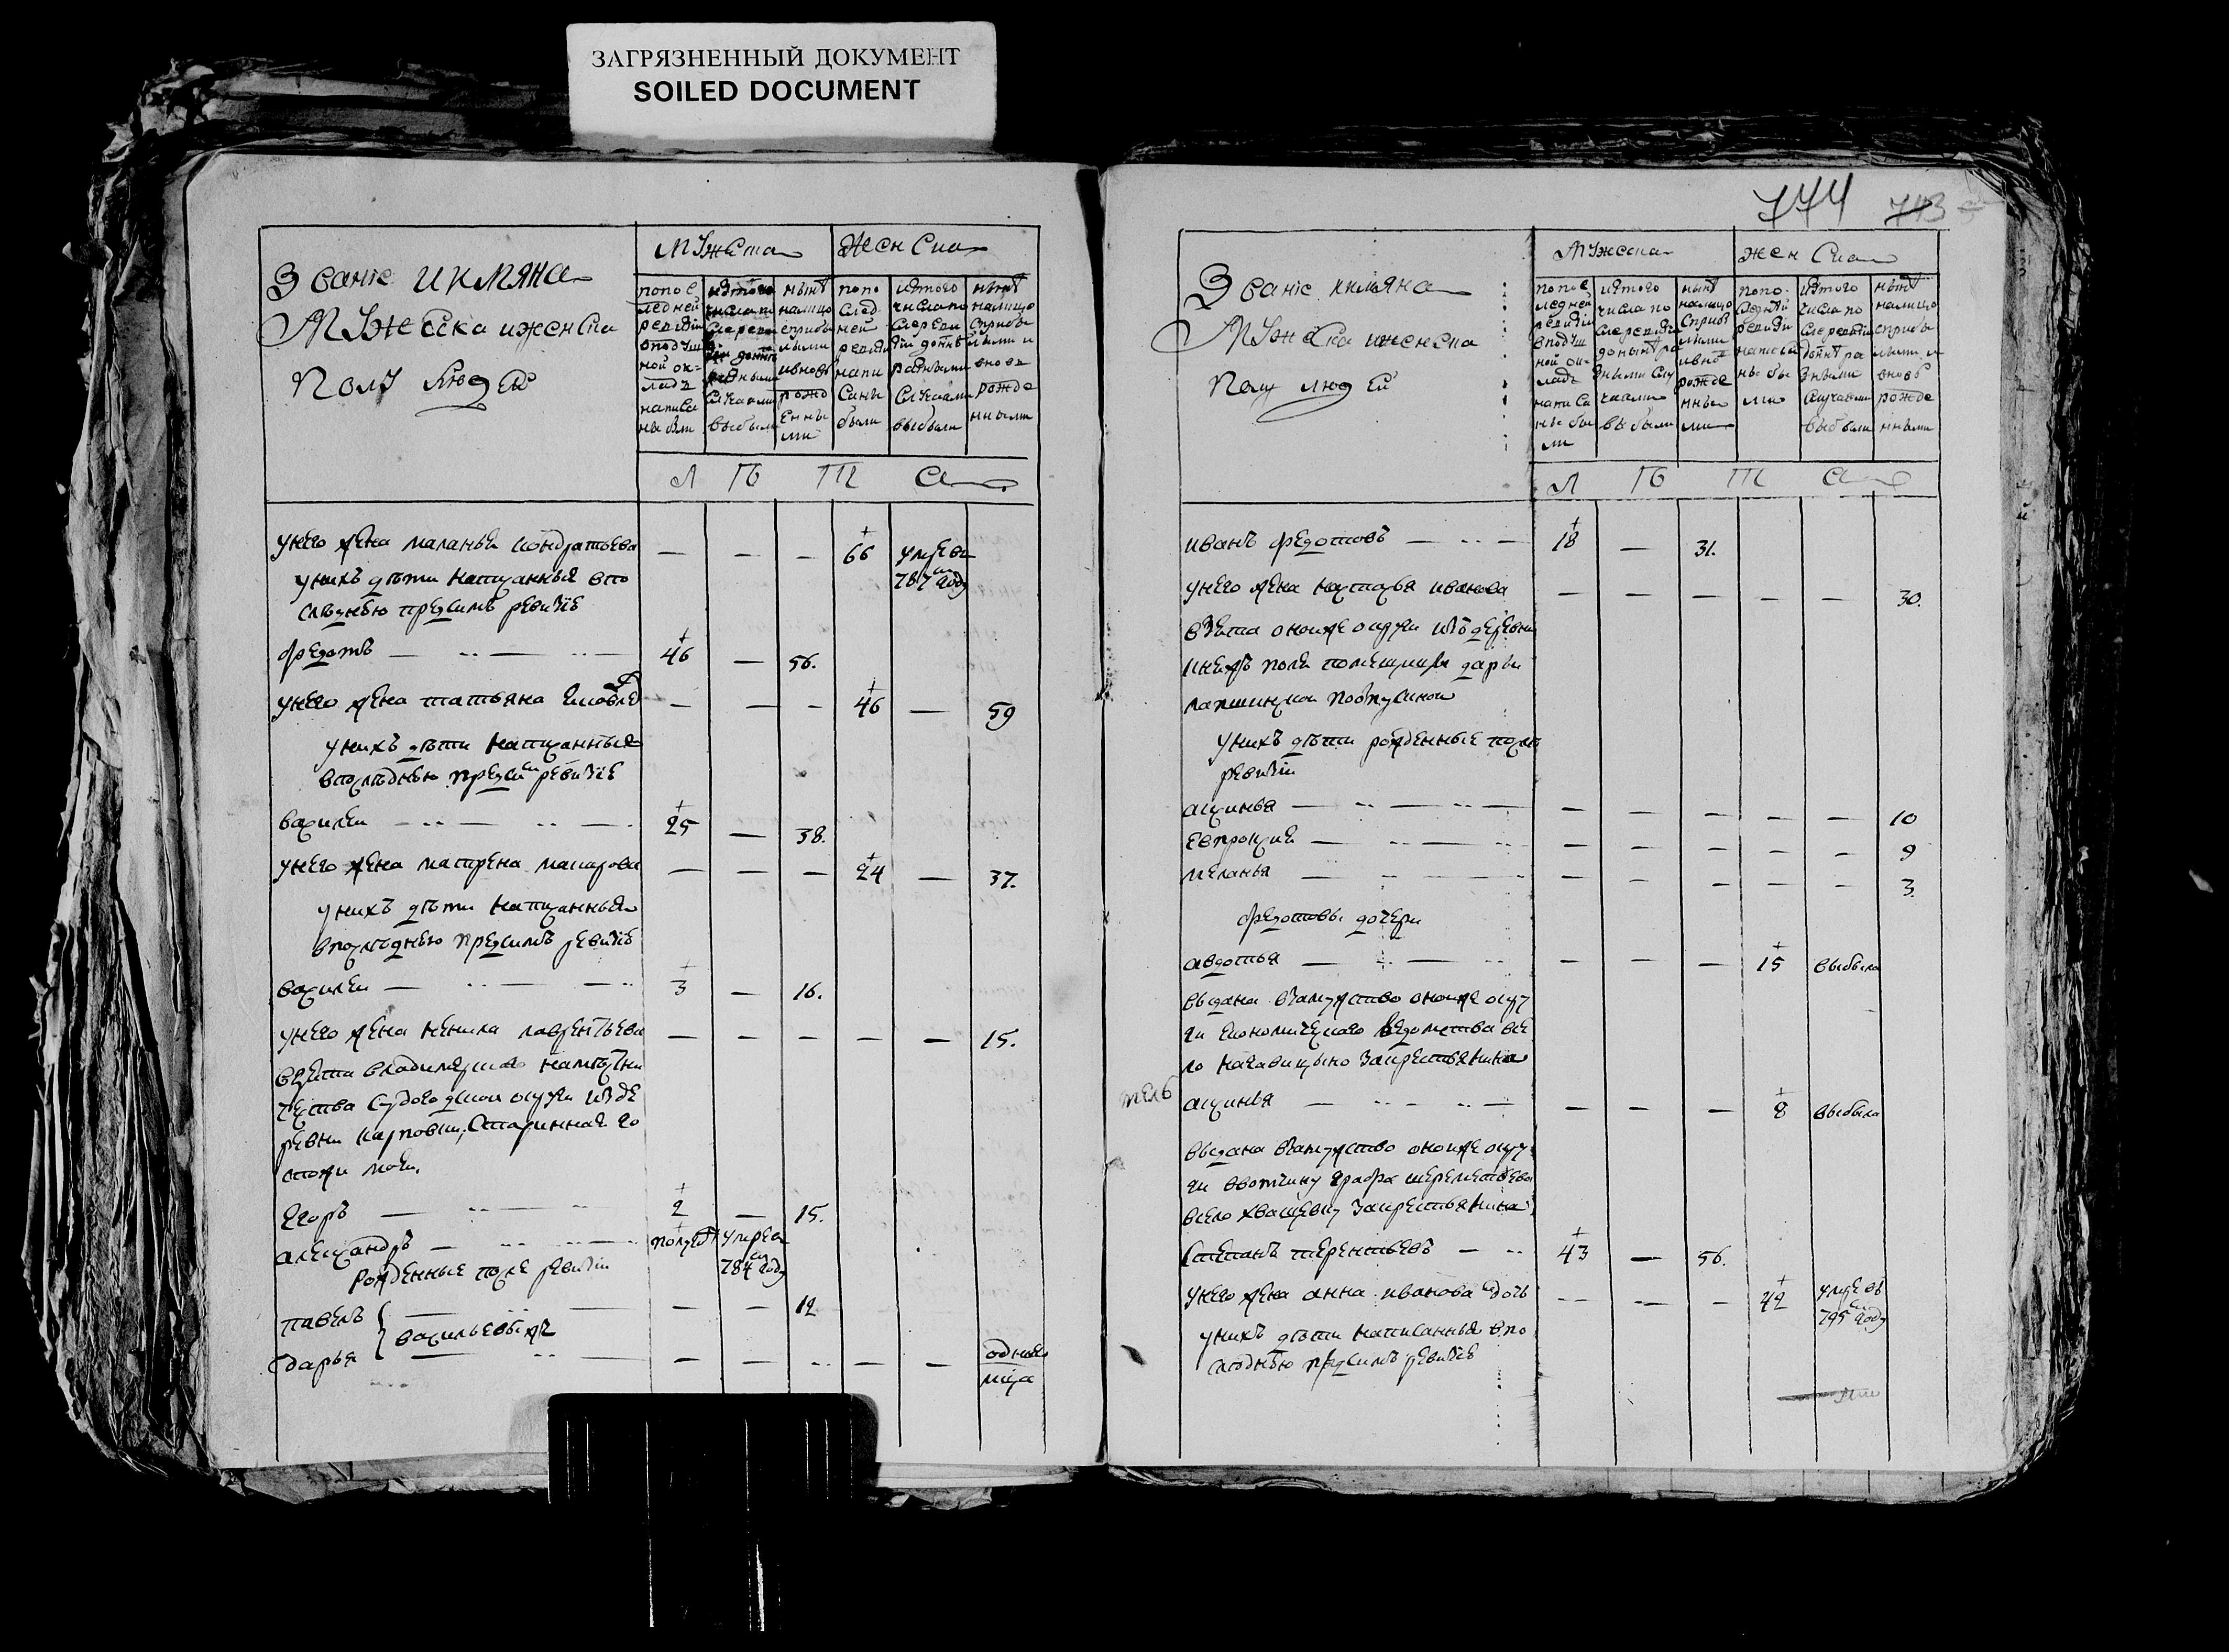 ЗАГРЯЗНЕННЫЙ ДОКУМЕНТ
SOILED DOCUMENT
Звание имяна
Мужеска иженска
Полу людей
Мужеска Женска
попос
ледней
ревизiи
вподуш
ной ок-
ладъ
написа
ны были
изтого
числа по
слеревизiи
донынѣ
разными
случаями
выбыли
нынѣ
налицо
сприбы
лыми
ивновь
рожд
енны
ми
попо
след
ней
ревизiи
напи
саны
были
изтого
числа по
слереви
зiи донынѣ
разными
случаями
выбыли
нынѣ
налицо
сприбы
лыми и
вновь
рожде
нными
Л Ѣ Т А
унего жена маланья кондратьева — — — 66 умре в
787м году
унихъ дѣти написанные впо
слѣднею предсимъ ревизiе
федотъ — 46 — 56.
унего жена татьяна — — — 46 — 59
унихъ дѣти написанныя
впослѣднею предсимъ ревизiе
василеи — 25 — 38.
унего жена матрена макарова — — — 24 — 37.
унихъ дѣти написанныя
впослѣднею предсимъ ревизiе
василеи — 3 — 16.
унего жена ненила лаврентьева — — — — — 15.
взята владимерскаго намѣстни
чества судогодскои округи издѣ
ревни карповки, старинная го
спожи моеи.
Егоръ — 2 — 15.
александръ — полугоду умре в
784м году
рожденные после ревизiи
павелъ — — — 12
васильевы жъ
дарья — — — — — однаго
мца
774 743
Звание имяна
Мужеска иженска
Полу людей
Мужеска женска
попос
ледней
ревизiи
вподуш
ной ок-
ладъ
написа
ны бы
ли
изтого
числа по
слеревизiи
донынѣ ра
зными слу
чаями
выбыли
нынѣ
налицо
сприбы
лыми
ивновь
рожде
нны
ми
попо-
следнѣй
ревизiи
написа
ны бы
ли
изтого
числа по
слеревизiи
донынѣ ра
зными
случаями
выбыли
нынѣ
налицо
сприбы
лыми и
вновь
рожде
нными
Л Ѣ Т А
иванъ федотовъ — 18 — 31.
унего жена настасья иванова — — — — — 30.
взята оноиже округи изъ деревни
поля помещицы дарьи
унихъ дѣти рожденные после
ревизiи
аксинья — — — — — 10
евпроксия — — — — — 9
меланья — — — — — 3.
федотовы дочери
авдотья — — — 15 выбыла
выдана взамужство оноиже окру
ги економическаго ведомства все
ло закрестьянина
аксинья — — — 8 выбыла
выдана взамужство оноиже окру
ги ввотчину графа шереметьева
всело закрестьянина
степанъ терентьевъ — 43 — 56.
унего жена анна иванова дочь — — — 42 умре въ
795м году
унихъ дѣти написанныя впо
слѣднею предсимъ ревизiе